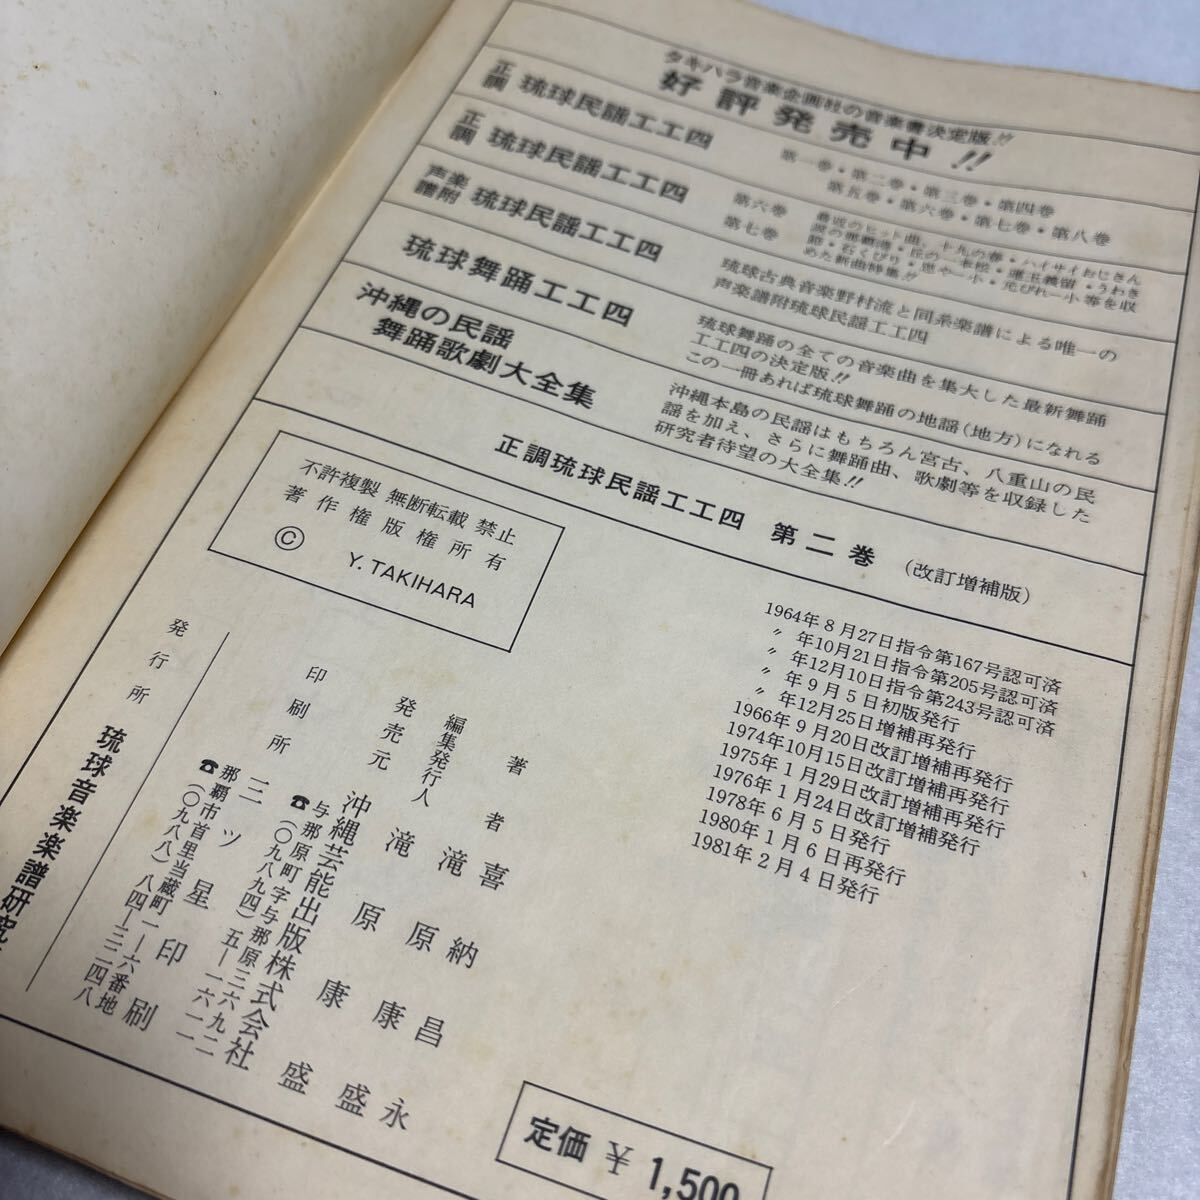 タキハラ音楽企画社の音楽書決定版!!
好評発売中!!
正調 琉球民謡工工四
第一巻・第二巻・第三巻・第四巻
第五巻・第六巻・第七巻・第八巻
正調 琉球民謡工工四
第六巻
第七巻
最近のヒット曲、十九の春・ハイサイおじさん
めた新曲特集!!
声楽譜附 琉球民謡工工四
琉球古典音楽野村流と同系楽譜による唯一の
声楽譜附琉球民謡工工四
琉球舞踊工工四
琉球舞踊の全ての音楽曲を集大した最新舞踊
工工四の決定版!!
この一冊あれば琉球舞踊の地謡(地方)になれる
沖縄の民謡
舞踊歌劇大全集
沖縄本島の民謡はもちろん宮古、八重山の民
謡を加え、さらに舞踊曲、歌劇等を収録した
研究者待望の大全集!!
正調琉球民謡工工四 第二巻 (改訂増補版)
不許複製 無断転載 禁止
著作権版権所有
© Y. TAKIHARA
1964年8月27日指令第167号認可済
〃 年10月21日指令第205号認可済
〃 年12月10日指令第243号認可済
〃 年9月5日初版発行
〃 年12月25日増補再発行
1966年9月20日改訂増補再発行
1974年10月15日改訂増補再発行
1975年1月29日改訂増補再発行
1976年1月24日改訂増補発行
1978年6月5日発行
1980年1月6日再発行
1981年2月4日発行
著者 喜納昌永
滝原康盛
編集発行人 滝原康盛
発売元 沖縄芸能出版株式会社
与那原町字与那原三六九二
☎(〇九八九四)五―一六一二
印刷所 三ツ星印刷
那覇市首里当蔵町一―六番地
☎(〇九八八)八四―三二四八
発行所 琉球音楽楽譜研究
定価 ¥1,500